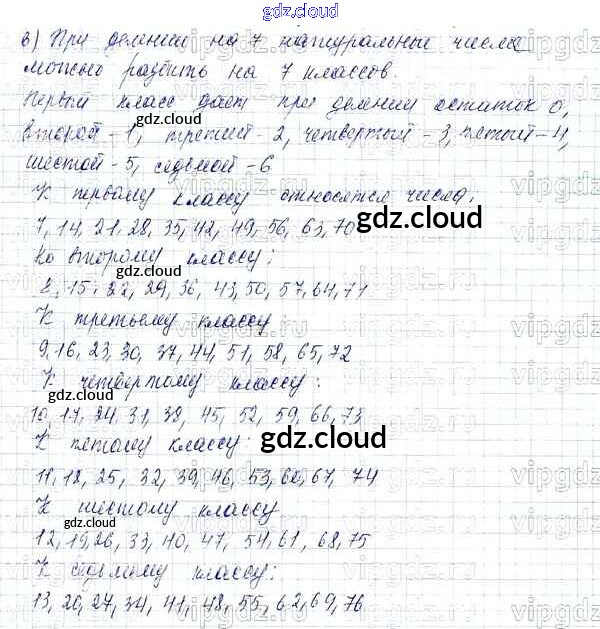 gdz.cloud
в) При делении на 7 натуральные числа
можно разбить на 7 классов.
Первый класс дает при делении остаток 0,
второй - 1, третий - 2, четвертый - 3, пятый - 4,
шестой - 5, седьмой - 6
К первому классу относятся числа:
7, 14, 21, 28, 35, 42, 49, 56, 63, 70
Ко второму классу:
8, 15, 22, 29, 36, 43, 50, 57, 64, 71
К третьему классу:
9, 16, 23, 30, 37, 44, 51, 58, 65, 72
К четвертому классу:
10, 17, 24, 31, 38, 45, 52, 59, 66, 73
К пятому классу:
11, 18, 25, 32, 39, 46, 53, 60, 67, 74
К шестому классу
12, 19, 26, 33, 40, 47, 54, 61, 68, 75
К седьмому классу:
13, 20, 27, 34, 41, 48, 55, 62, 69, 76